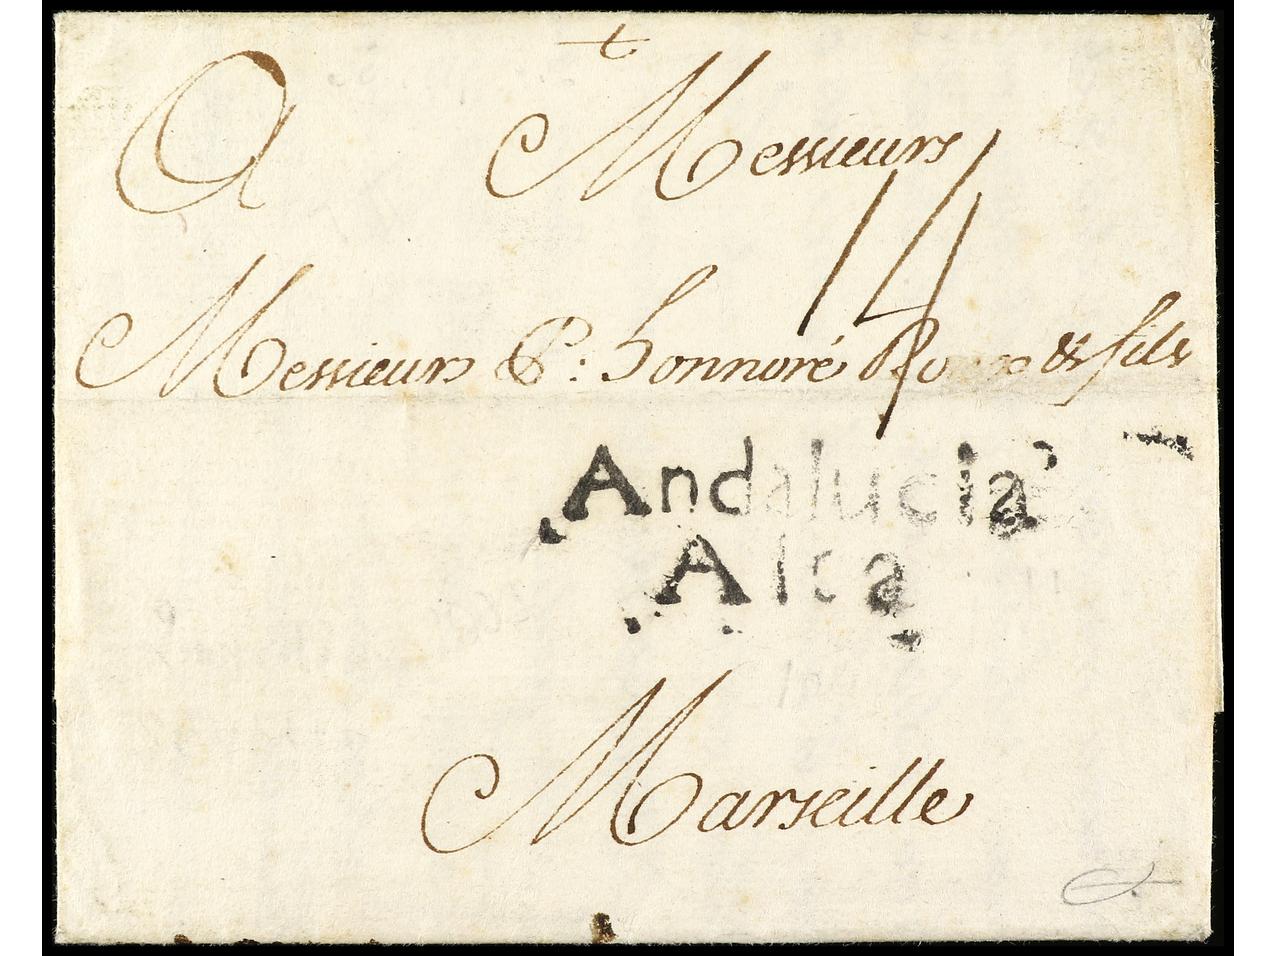 A Messieurs
14
Messieurs P: honnoré Roux & fils
Andalucia
Alta
Marseille